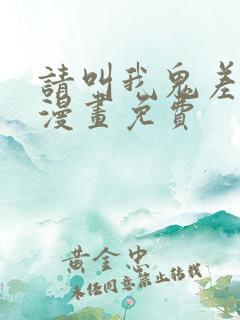 請叫我鬼差
漫畫免費
黃金忠
未經同意禁止轉載